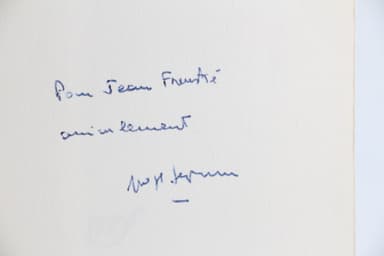 Pour Jean Freustié
amicalement